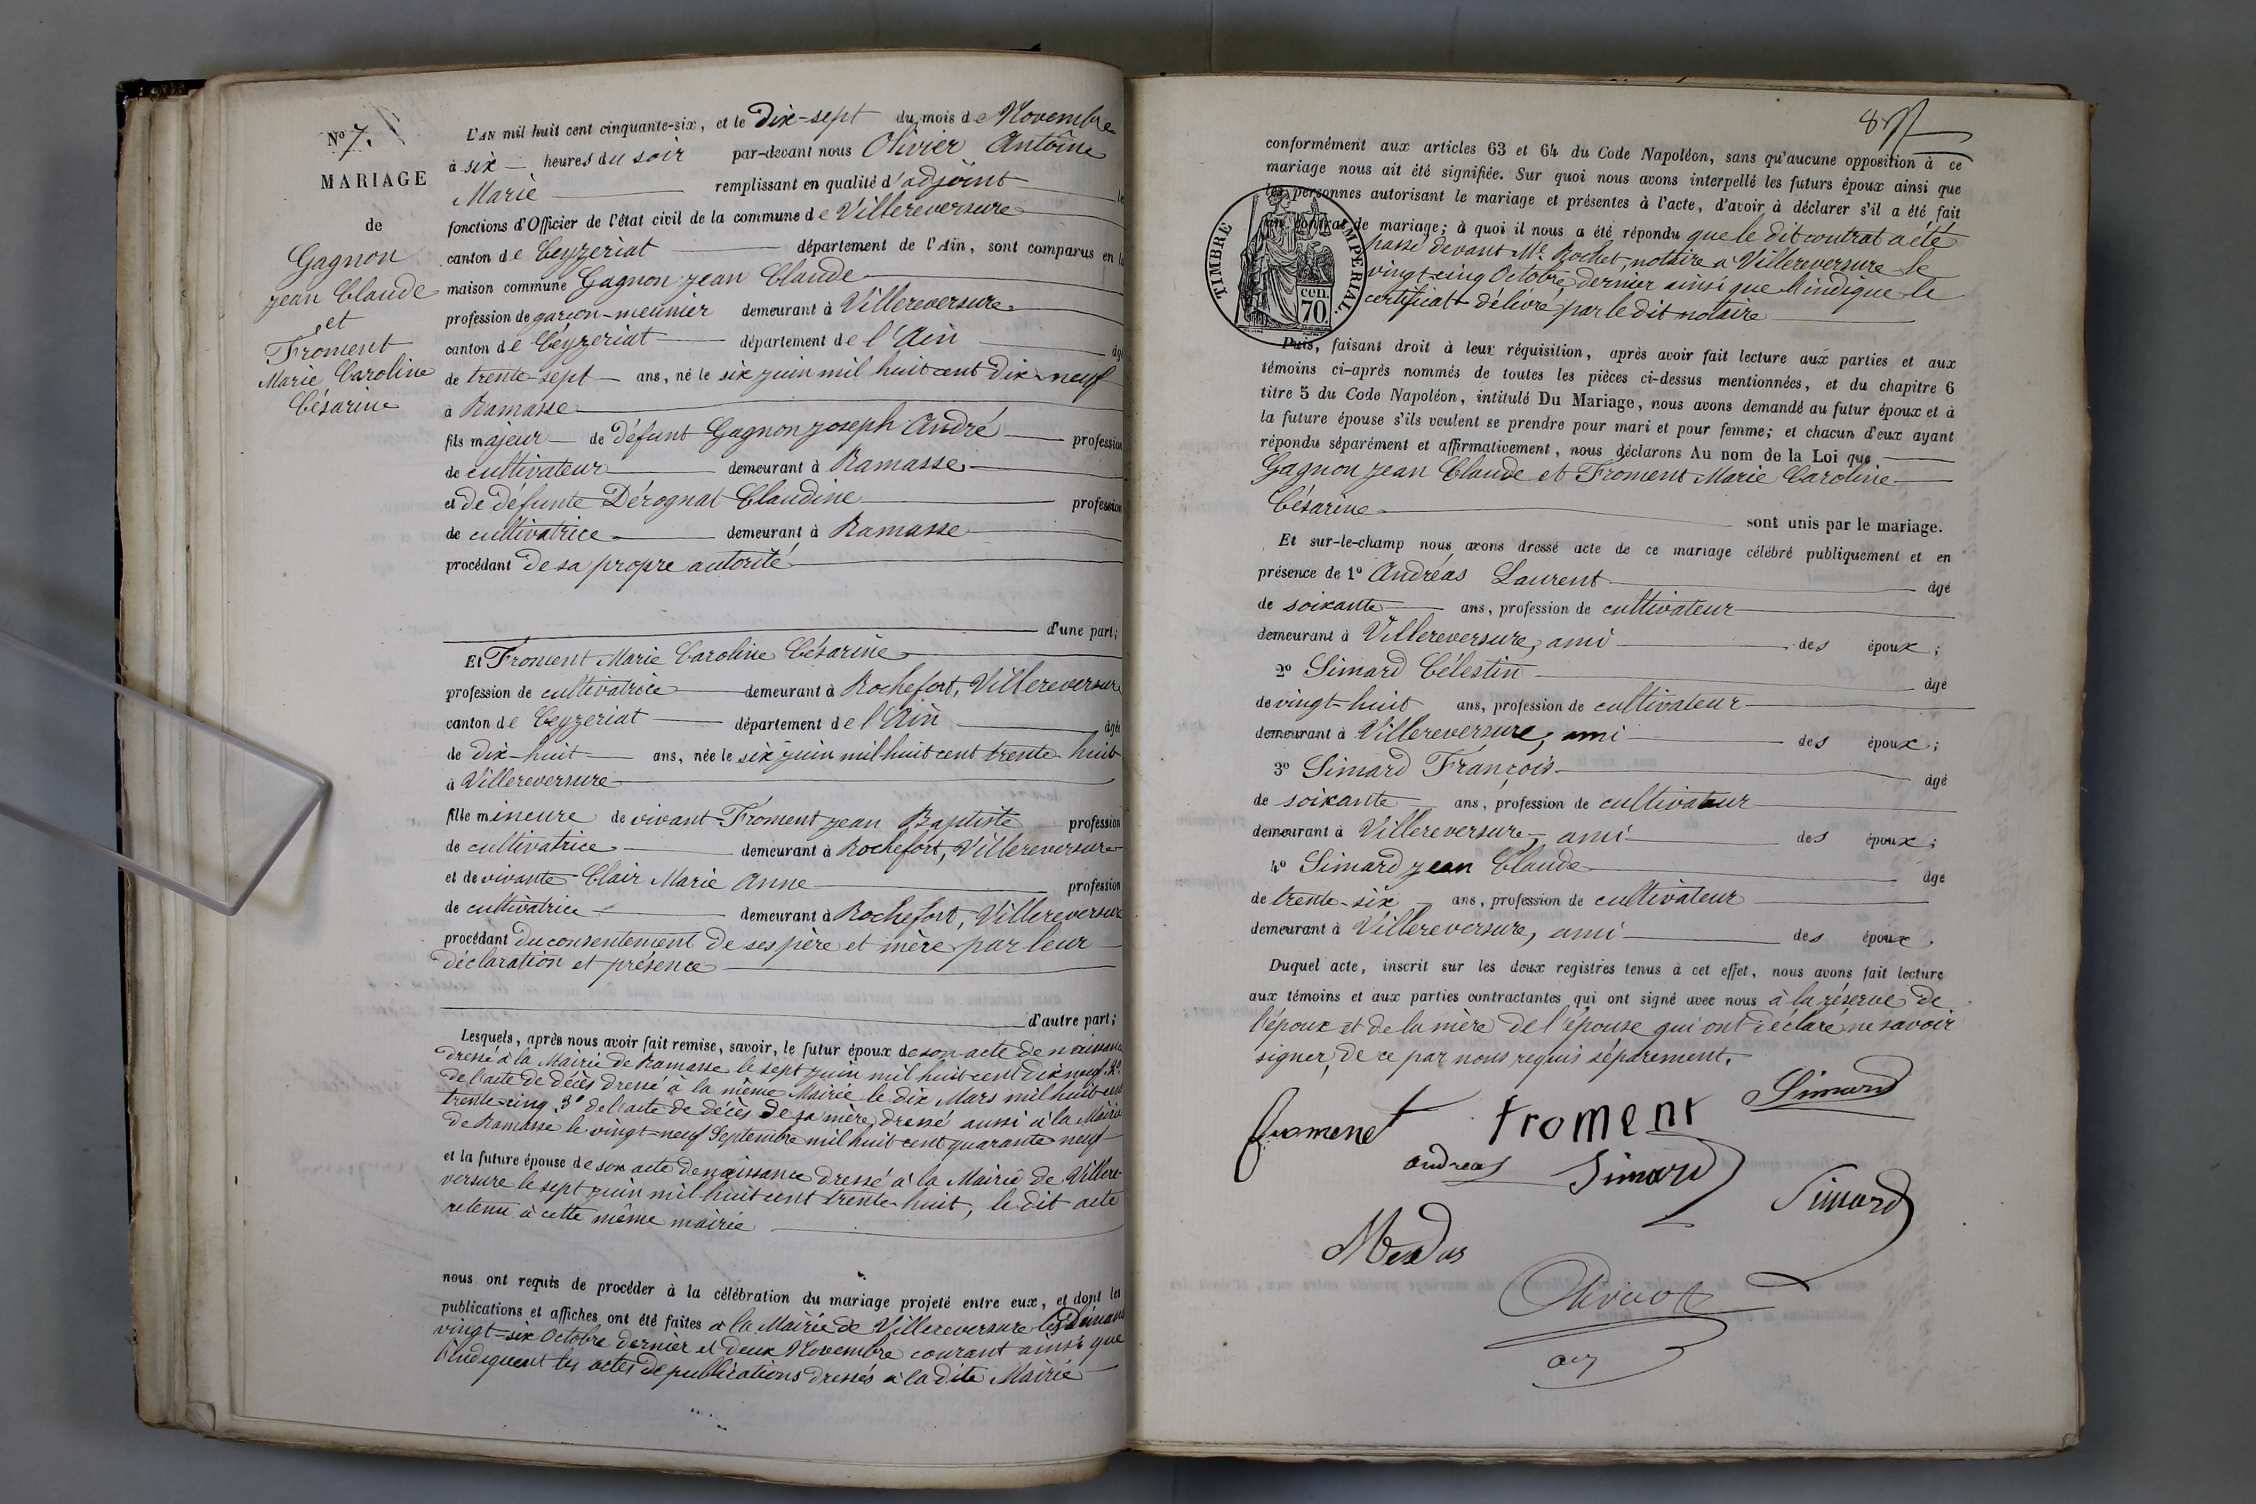 N° 7.
MARIAGE
de
Gagnon
jean Claude
et
Froment
Marie Caroline
Césarine
L'AN mil huit cent cinquante-six, et le dix-sept du mois de Novembre
à six heures du soir par-devant nous Olivier Antoine
Marie remplissant en qualité d'adjoint le
fonctions d'Officier de l'état civil de la commune de Villereversure
canton de Ceyzeriat département de l'Ain, sont comparus en la
maison commune Gagnon jean Claude
profession de garçon-meunier demeurant à Villereversure
canton de Céyzeriat département de l'Ain âgé
de trente-sept ans, né le six juin mil huit cent dix-neuf
à Ramasse
fils majeur de défunt Gagnon joseph André profession
de cultivateur demeurant à Ramasse
et de défunte Dérognat Claudine profession
de cultivatrice demeurant à Ramasse
procédant de sa propre autorité
d'une part;
Et Froment Marie Caroline Césarine
profession de cultivatrice demeurant à Rochefort, Villereversure
canton de Ceyzeriat département de l'Ain âgée
de dix-huit ans, née le six juin mil huit cent trente-huit
à Villereversure
fille mineure de vivant Froment jean Baptiste profession
de cultivatrice demeurant à Rochefort, Villereversure
et de vivante Clair Marie Anne profession
de cultivatrice demeurant à Rochefort, Villereversure
procédant du consentement de ses père et mère par leur
déclaration et présence
d'autre part;
Lesquels, après nous avoir fait remise, savoir, le futur époux de son acte de naissance
dressé à la Mairie de Ramasse le sept juin mil huit cent dix neuf 2°
de l'acte de décès dressé à la même Mairie le dix Mars mil huit cent
trente-cinq 3° de l'acte de décès de sa mère dressé aussi à la Mairie
de Ramasse le vingt-neuf Septembre mil huit cent quarante neuf
et la future épouse de son acte de naissance dressé à la Mairie de Villere-
versure le sept juin mil huit cent trente-huit, le dit acte
retenu à cette même mairie
nous ont requis de procéder à la célébration du mariage projeté entre eux, et dont les
publications et affiches ont été faites à la Mairie de Villereversure les Dimanc
vingt-six Octobre dernier et deux Novembre courant ainsi que
l'indiquent les actes de publications dressés à la dite Mairie
conformément aux articles 63 et 64 du Code Napoléon, sans qu'aucune opposition à ce
mariage nous ait été signifiée. Sur quoi nous avons interpellé les futurs époux ainsi que
les personnes autorisant le mariage et présentes à l'acte, d'avoir à déclarer s'il a été fait
un contrat de mariage; à quoi il nous a été répondu que le dit contrat a été
passé devant Me Rochet, notaire à Villereversure le
vingt-cinq Octobre dernier ainsi que l'indique le
certificat délivré par le dit notaire
TIMBRE IMPERIAL.
cen.
70.
Puis, faisant droit à leur réquisition, après avoir fait lecture aux parties et aux
témoins ci-après nommés de toutes les pièces ci-dessus mentionnées, et du chapitre 6
titre 5 du Code Napoléon, intitulé Du Mariage, nous avons demandé au futur époux et à
la future épouse s'ils veulent se prendre pour mari et pour femme; et chacun d'eux ayant
répondu séparément et affirmativement, nous déclarons Au nom de la Loi que
Gagnon jean Claude et Froment Marie Caroline
Césarine sont unis par le mariage.
Et sur-le-champ nous avons dressé acte de ce mariage célébré publiquement et en
présence de 1° Andréas Laurent âgé
de soixante ans, profession de cultivateur
demeurant à Villereversure, ami des époux;
2° Simard Célestin âgé
de vingt-huit ans, profession de cultivateur
demeurant à Villereversure, ami des époux;
3° Simard François âgé
de soixante ans, profession de cultivateur
demeurant à Villereversure, ami des époux;
4° Simard jean Claude âgé
de trente-six ans, profession de cultivateur
demeurant à Villereversure, ami des époux.
Duquel acte, inscrit sur les deux registres tenus à cet effet, nous avons fait lecture
aux témoins et aux parties contractantes qui ont signé avec nous à la réserve de
l'époux et de la mère de l'épouse qui ont déclaré ne savoir
signer, de ce par nous requis séparement.
Simard
froment froment
andreas Simard
Simard